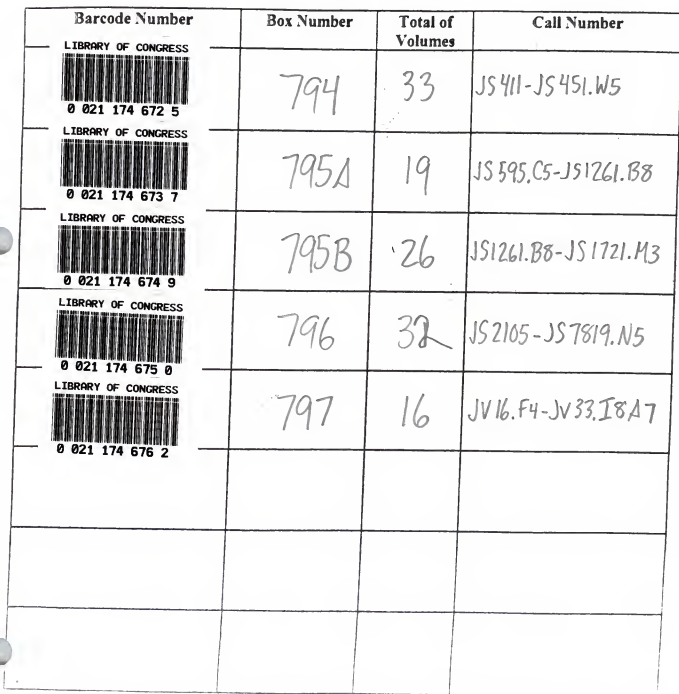 Barcode Number Box Number Total of Volumes Call Number
LIBRARY OF CONGRESS
0 021 174 672 5
794 33 JS411-JS451.W5
LIBRARY OF CONGRESS
0 021 174 673 7
795A 19 JS595.C5-JS1261.B8
LIBRARY OF CONGRESS
0 021 174 674 9
795B 26 JS1261.B8-JS1721.M3
LIBRARY OF CONGRESS
0 021 174 675 0
796 32 JS2105-JS7819.N5
LIBRARY OF CONGRESS
0 021 174 676 2
797 16 JV16.F4-JV33.I8A7